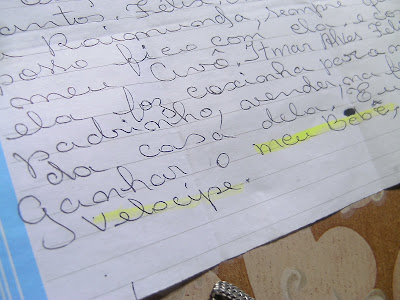 antos. Feliz
a Raimunda, sempre q
posso fico com ela e o
meu avô, Itmar Alves
ela faz coxinha para o
Padrinho, vender, na
da casa dela. Eu
Ganhar o meu Bebê,
Velocipe.